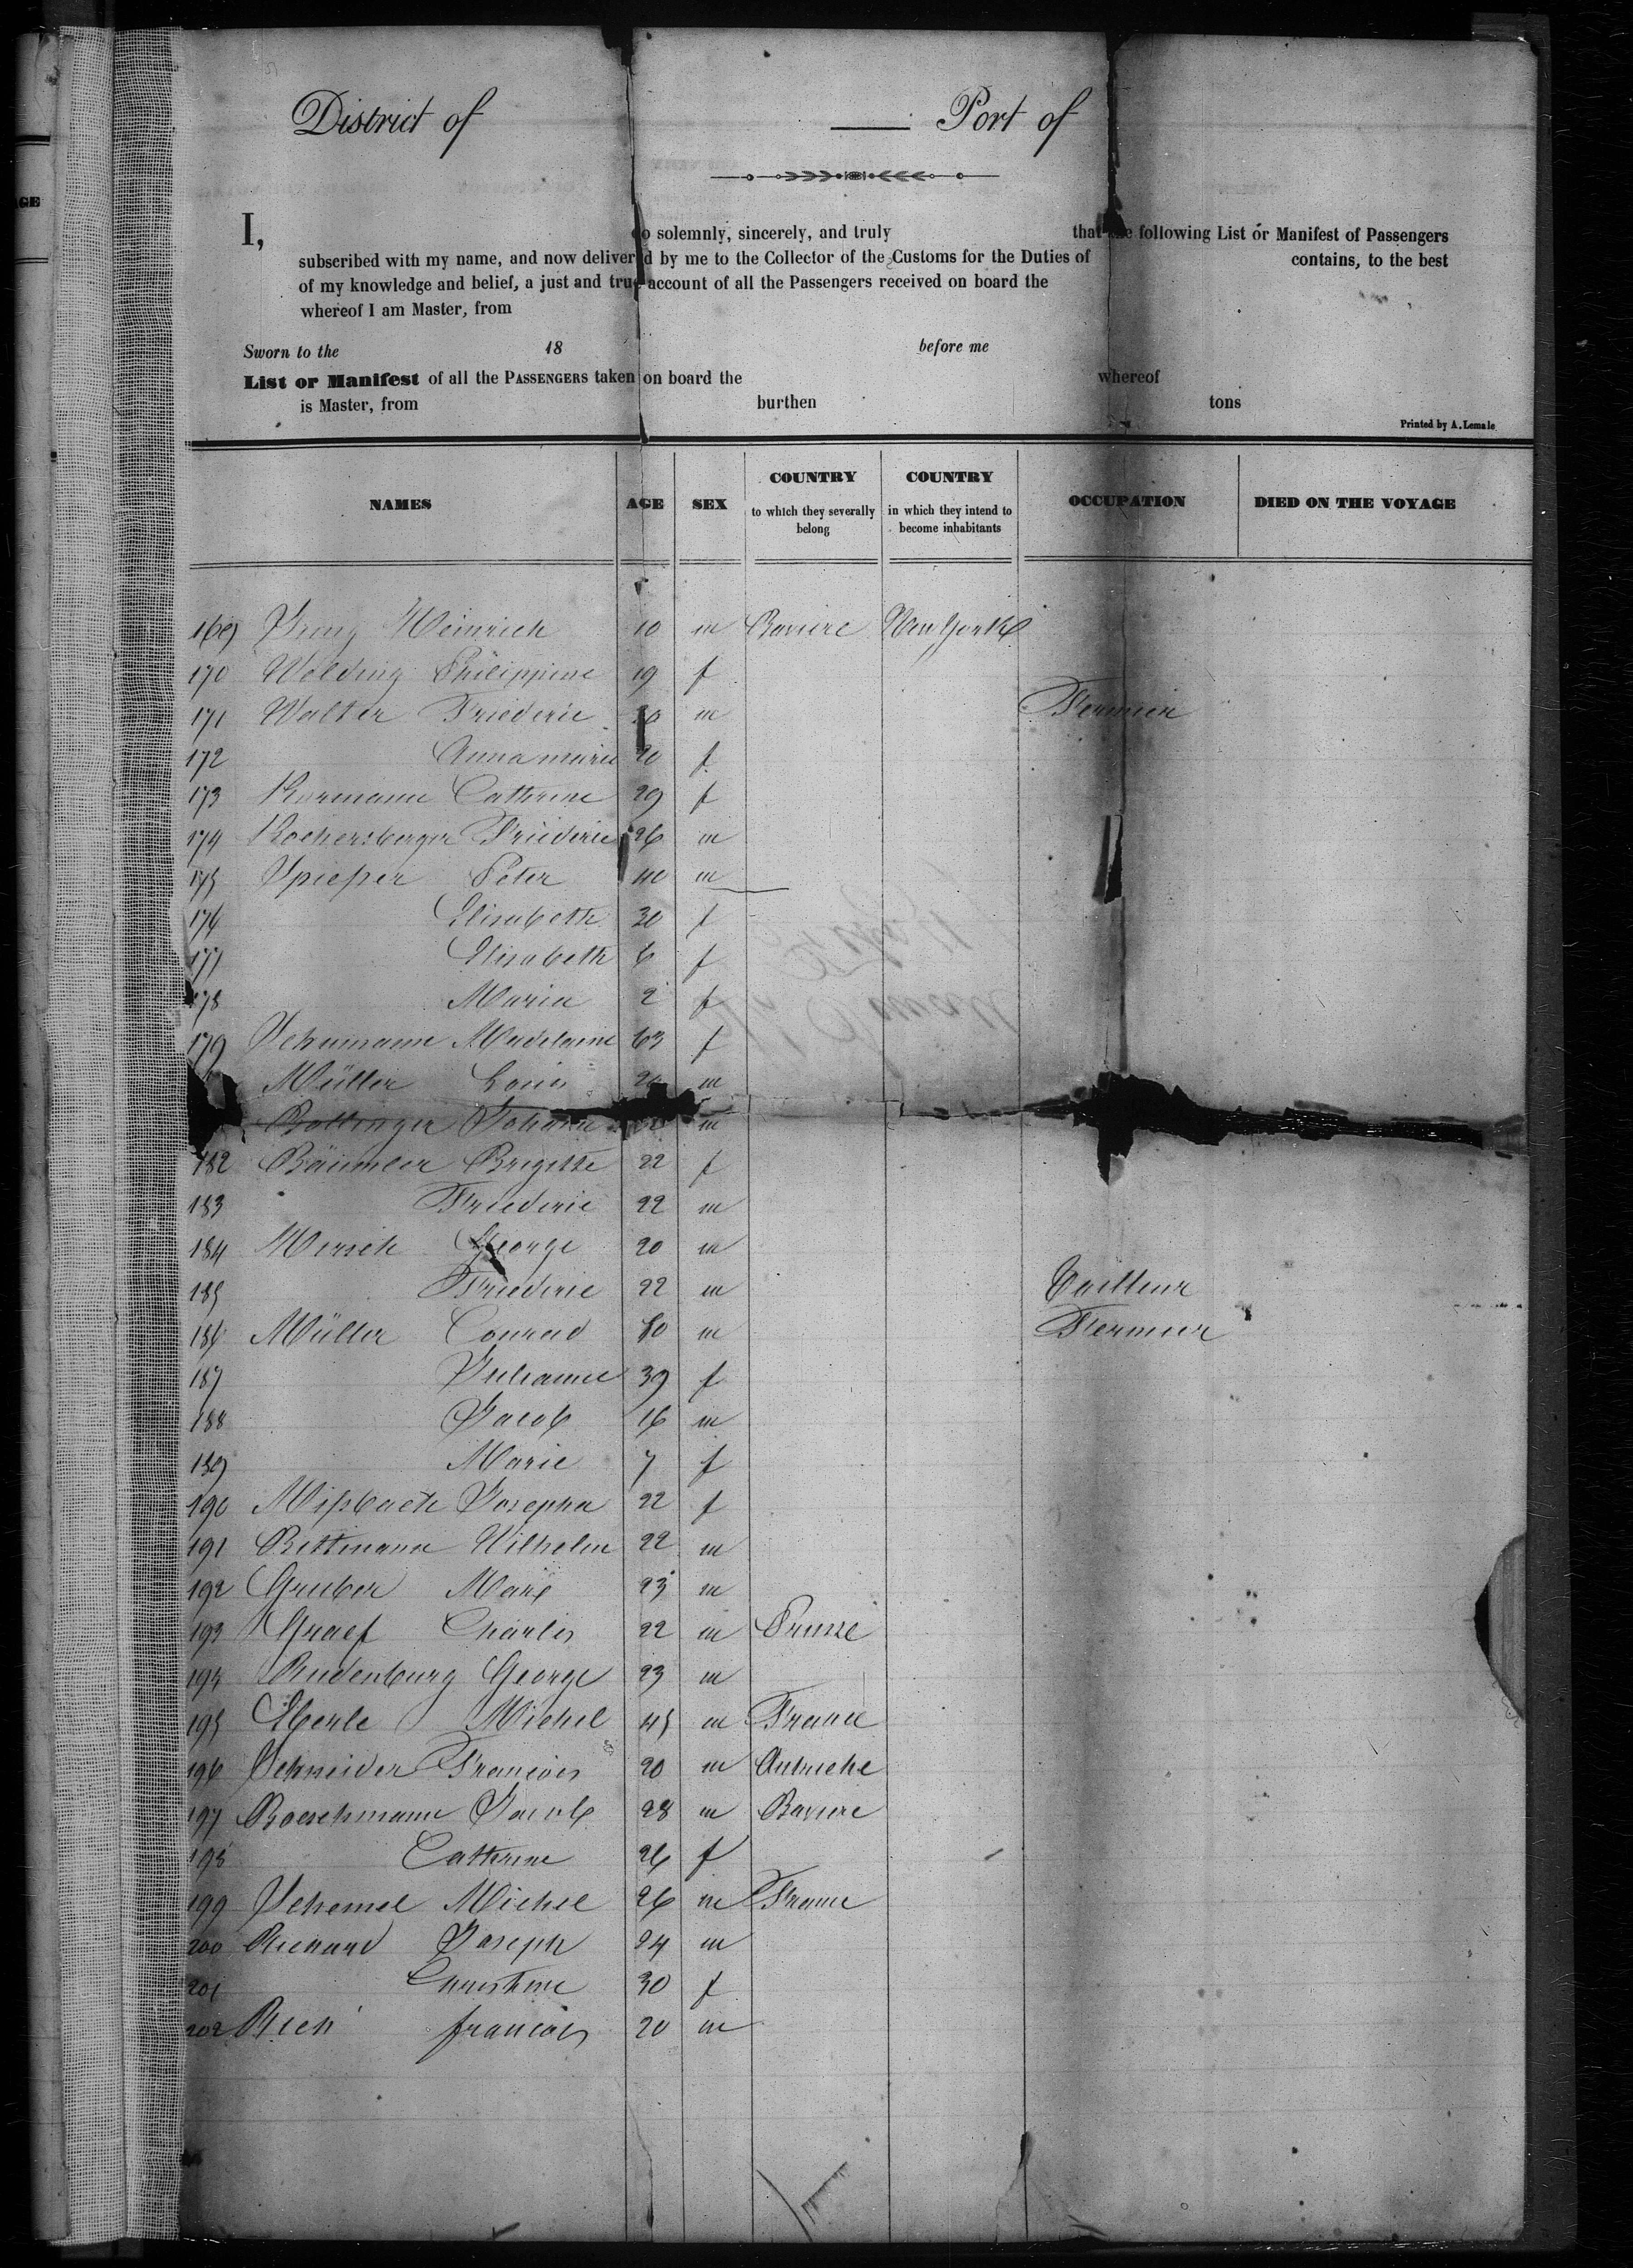 District of Port of
I, do solemnly, sincerely, and truly that the following List or Manifest of Passengers
subscribed with my name, and now delivered by me to the Collector of the Customs for the Duties of contains, to the best
of my knowledge and belief, a just and true account of all the Passengers received on board the
whereof I am Master, from
Sworn to the 18 before me
List or Manifest of all the PASSENGERS taken on board the whereof
is Master, from burthen tons
Printed by A. Lemale
NAMES AGE SEX COUNTRY to which they severally belong COUNTRY in which they intend to become inhabitants OCCUPATION DIED ON THE VOYAGE
169 Jung Heinrich 10 m Baviere New York
170 Welding Philippine 19 f
171 Walter Friederic m Fermier
172 Anna marie 20 f
173 Kormann Catherine 29 f
174 Kochersberger Friederic 26 m
175 Spieser Peter 40 m
176 Elisabeth 30 f
177 Elisabeth 6 f
178 Maria 2 f
179 Schumann Madelaine 63 f
Müller Louis m
Bollinger Johann m
182 Bäumler Brigitte 22 f
183 Friederic 22 m
184 Mersch George 20 m
185 Friederic 22 m Tailleur
186 Müller Conrad m Fermier
187 Julianne 39 f
188 Jacob 16 m
189 Marie 7 f
190 Misbach Josepha 22 f
191 Bettmann Wilhelm 22 m
192 Gruber Marx 23 m
193 Graef Charles 22 m Prusse
194 Rudenburg George 23 m
195 Eberle Michel 45 m France
196 Schneider Francois 20 m Autriche
197 Boeschmann Jacob 28 m Baviere
198 Catherine 26 f
199 Schemel Michel 26 m France
200 Richard Joseph 24 m
201 Christine 30 f
202 francois 20 m